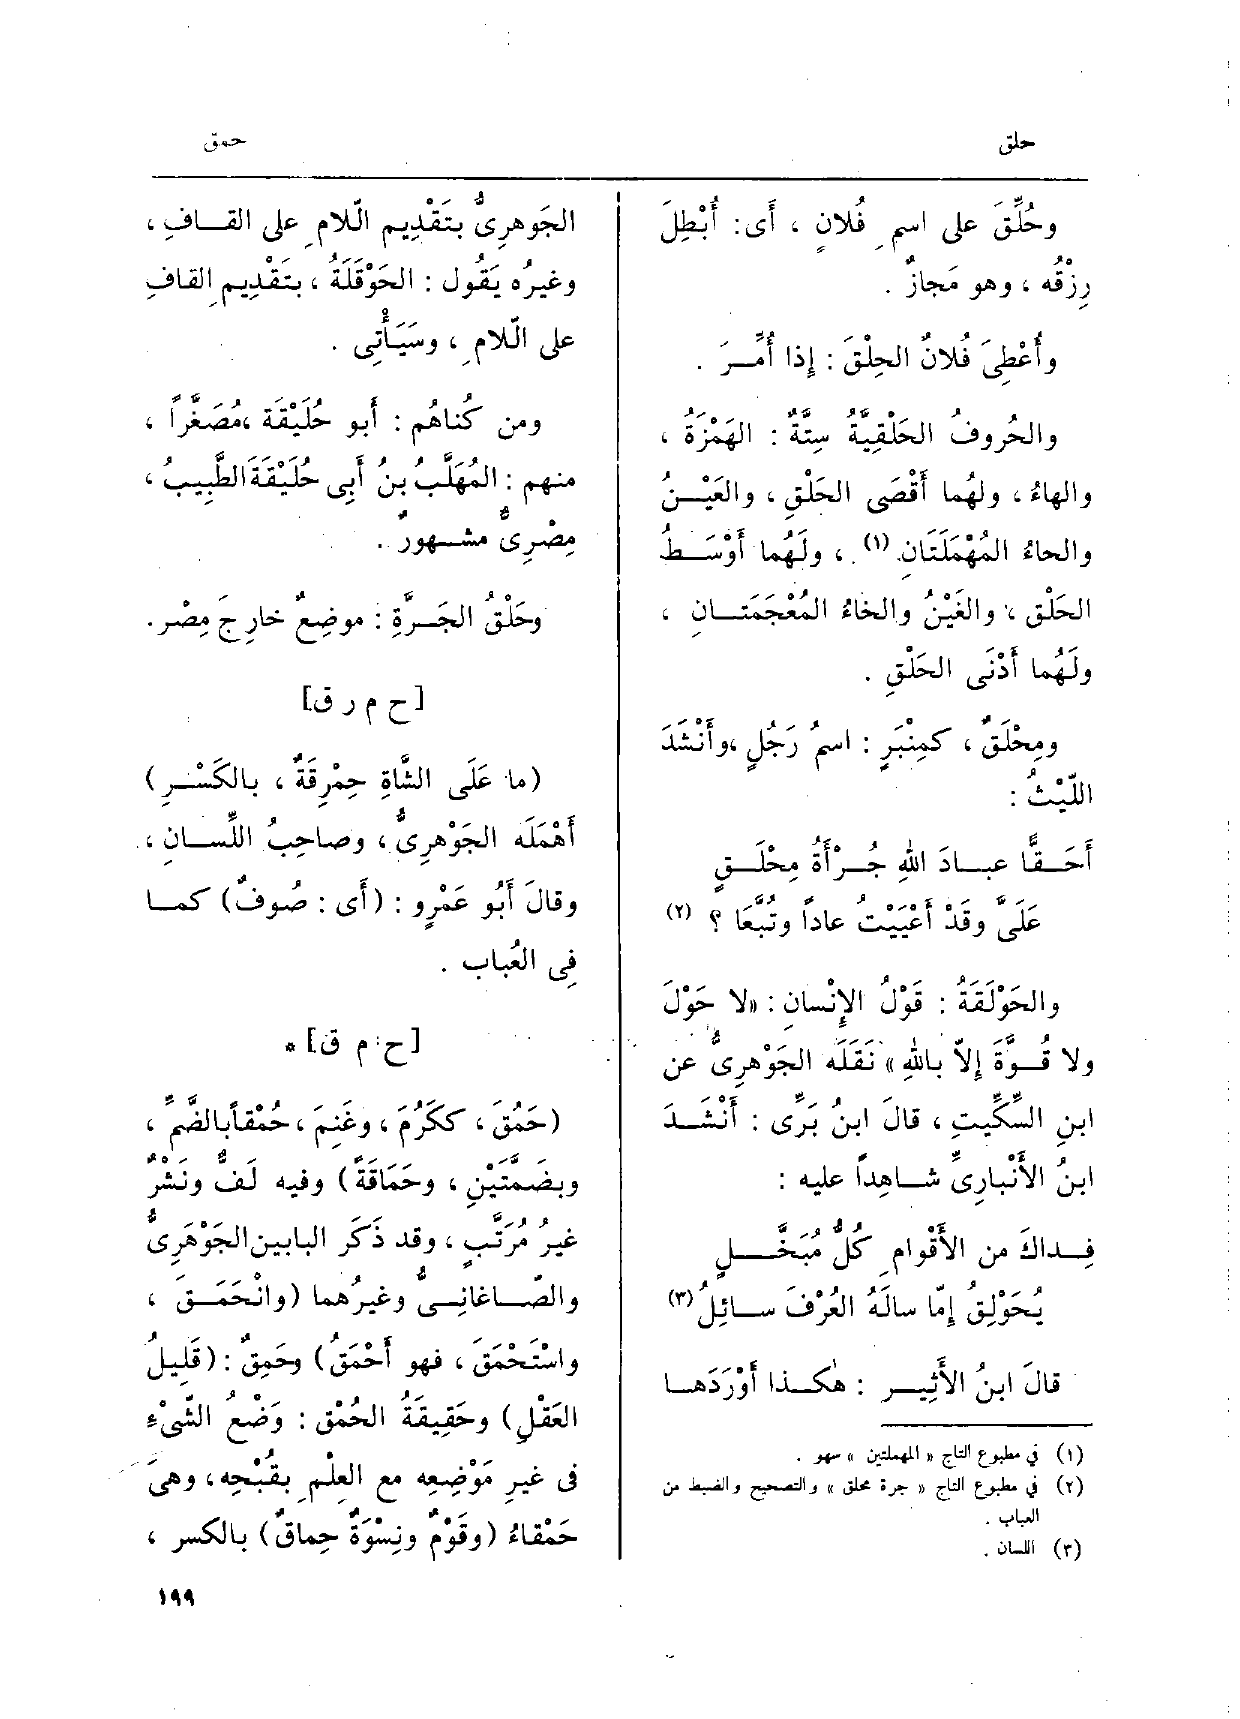 حلق
حمق
وحُلِّقَ على اسمِ فُلانٍ ، أَى: أُبْطِلَ
رِزْقُه ، وهو مَجازٌ .
وأُعْطِىَ فُلانٌ الحِلْقَ : إِذا أُمِّـرَ .
والحُروفُ الحَلْقِيَّةُ سِتَّةٌ : الهَمْزَةُ ،
والهاءُ ، ولهُما أَقْصَى الحَلْقِ ، والعَيْـنُ
والحاءُ المُهْمَلَتَانِ (١) ، ولَهُما أَوْسَـطُ
الحَلْقِ ، والغَيْنُ والخاءُ المُعْجَمَتـانِ ،
ولَهُما أَدْنَى الحَلْقِ .
ومِحْلَقٌ ، كمِنْبَرٍ : اسمُ رَجُلٍ ، وأَنْشَدَ
اللَّيْثُ :
أَحَـقًّا عبـادَ اللهِ جُـرْأَةُ مِحْلَـقٍ
عَلَىَّ وقَدْ أَعْيَيْتُ عاداً وتُبَّعَا ؟ (٢)
والحَوْلَقَةُ : قَوْلُ الإِنْسانِ : «لا حَوْلَ
ولا قُـوَّةَ إِلاّ باللهِ» نَقَلَه الجَوْهَرِىُّ عن
ابنِ السِّكِّيتِ ، قالَ ابنُ بَرِّى : أَنْشَـدَ
ابنُ الأَنْبارِىِّ شـاهِداً عليه :
فِـداكَ من الأَقْوامِ كُلُّ مُبَخَّـلٍ
يُحَوْلِقُ إِمّا سالَهُ العُرْفَ سـائِلُ (٣)
قالَ ابنُ الأَثِيـر : هٰكـذا أَوْرَدَهـا
(١) فى مطبوع التاج « المهملتين » سهو .
(٢) فى مطبوع التاج « جرة محلق » والتصحيح والضبط من
العباب .
(٣) اللسان .
الجَوهرِىُّ بتَقْدِيم الّلامِ على القـافِ ،
وغيرُه يَقُول : الحَوْقَلَةُ ، بتَقْدِيمِ القافِ
على الّلامِ ، وسَيَأْتِى .
ومن كُناهُم : أَبو حُلَيْقَة ، مُصَغَّراً ،
منهم : المُهَلَّبُ بنُ أَبِى حُلَيْقَةَ الطَّبِيبُ ،
مِصْرِىٌّ مشـهورٌ .
وحَلْقُ الجَـرَّةِ : موضِعٌ خارِجَ مِصْر.
[ح م ر ق]
(ما عَلَى الشَّاةِ حِمْرِقَةٌ ، بالكَسْـرِ)
أَهْمَلَه الجَوْهرِىُّ ، وصاحِبُ اللِّسـانِ ،
وقالَ أَبُو عَمْرٍو : (أَى : صُوفٌ) كمـا
فِى العُباب .
[ح م ق] *
(حَمُقَ ، ككَرُمَ ، وغَنِمَ ، حُمْقاً بالضَّمِّ ،
وبضَمَّتَيْنِ ، وحَمَاقَةً) وفيه لَفٌّ ونَشْرٌ
غيرُ مُرَتَّبٍ ، وقد ذَكَر البابين الجَوْهَرِىُّ
والصّـاغانِـىُّ وغيرُهما (وانْحَمَـقَ ،
واسْتَحْمَقَ ، فهو أَحْمَقُ) وحَمِقٌ : (قَلِيلُ
العَقْلِ) وحَقِيقَةُ الحُمْقِ : وَضْعُ الشَّىْءِ
فى غيرِ مَوْضِعِه مع العِلْمِ بقُبْحِه، وهىَ
حَمْقاءُ (وقَوْمٌ ونِسْوَةٌ حِماقٌ) بالكسر ،
١٩٩